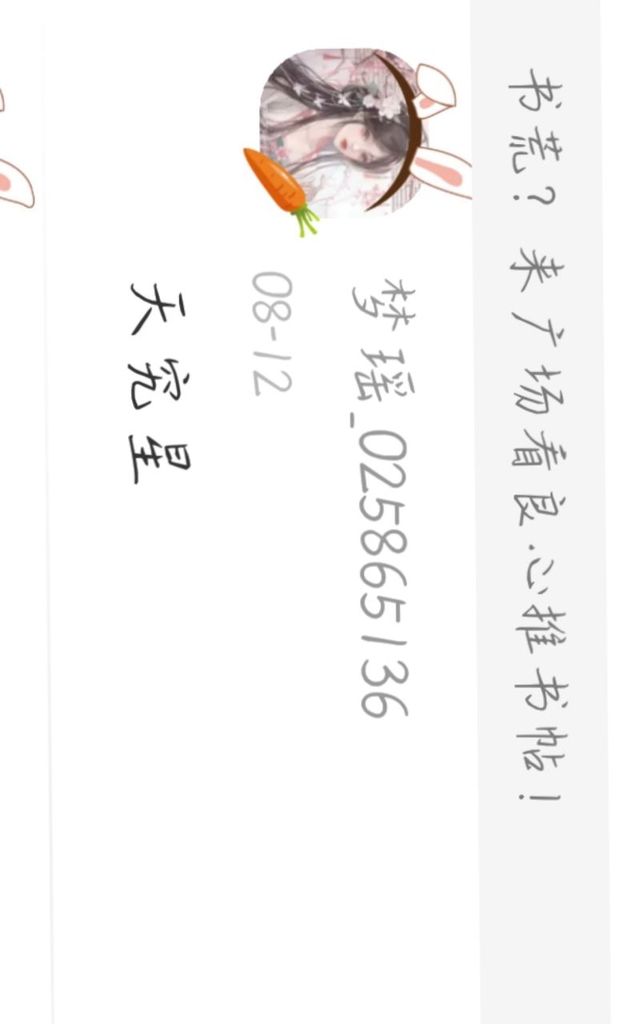 书荒？来广场看良心推书帖！
梦瑶_025865136
08-12
天究星